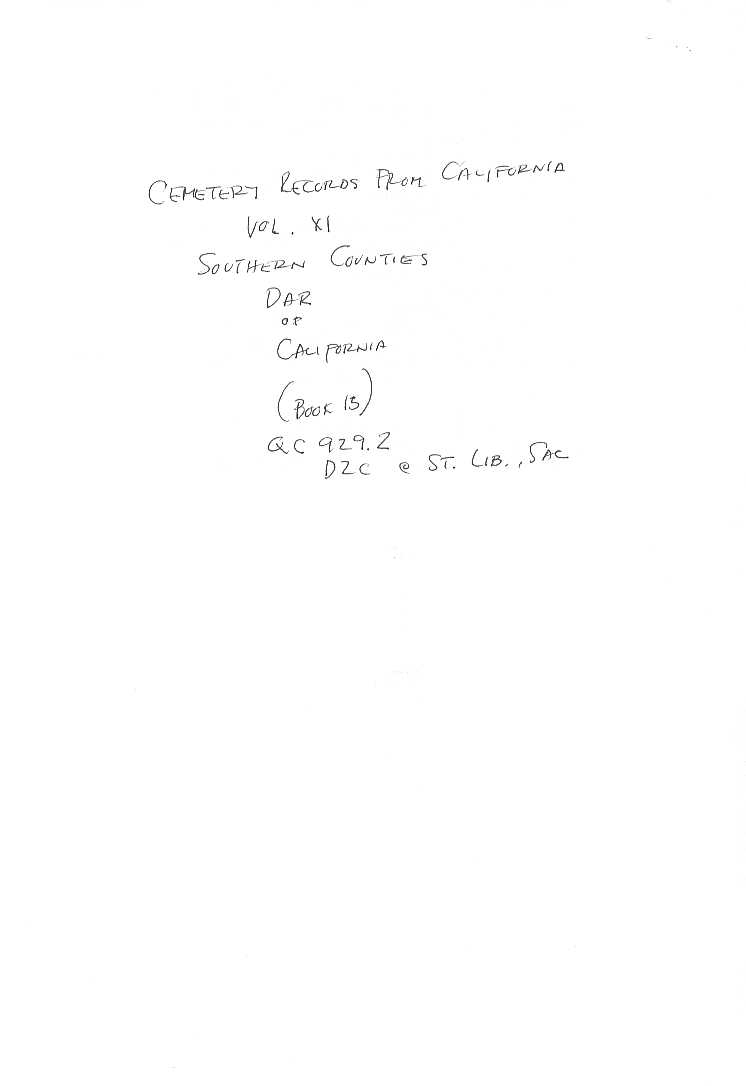 CEMETERY RECORDS FROM CALIFORNIA
VOL. XI
SOUTHERN COUNTIES
DAR
OF
CALIFORNIA
(BOOK 13)
QC 929.2
D2C @ ST. LIB., SAC